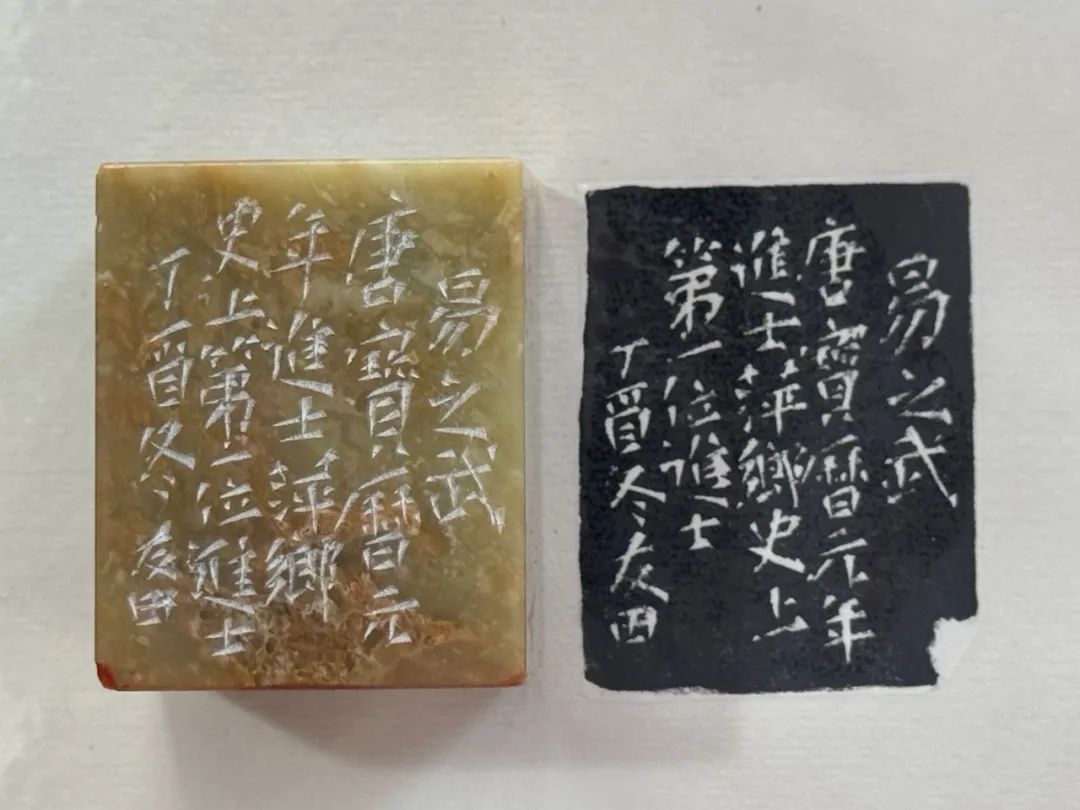 易之武
唐寶曆元
年進士萍鄉
史上第一位進士
丁酉冬友田
易之武
唐寶曆元年
進士萍鄉史上
第一位進士
丁酉冬友田